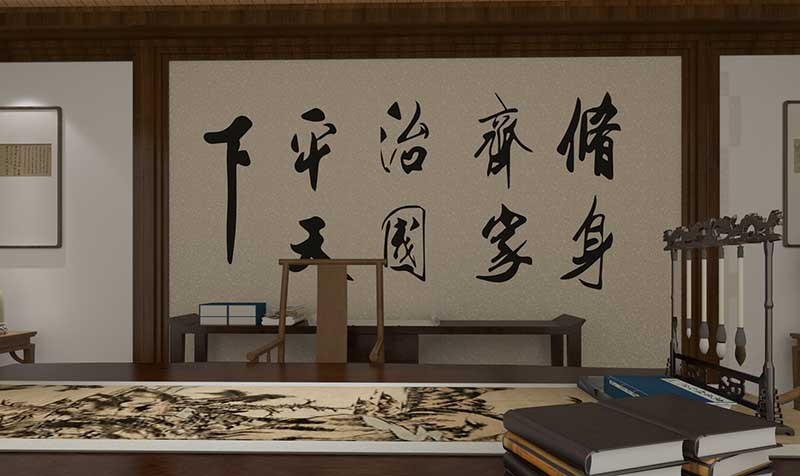 脩身
齊家
治國
平天
下